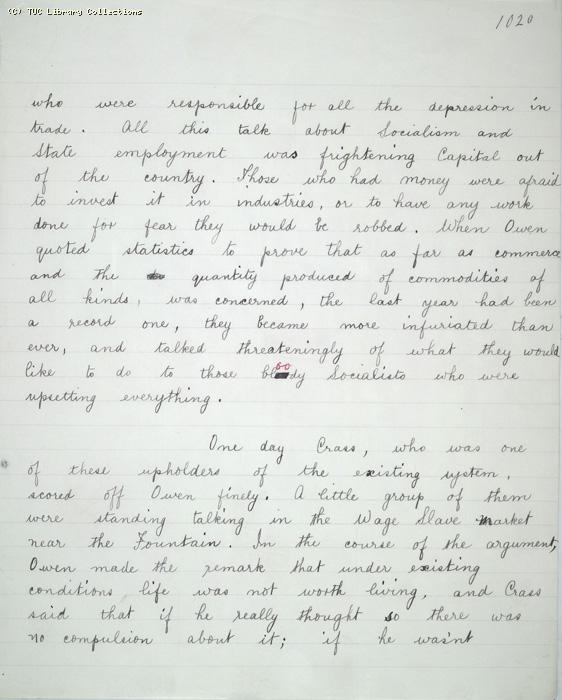 (C) TUC Library Collections
1020
who were responsible for all the depression in
trade. All this talk about Socialism and
State employment was frightening Capital out
of the country. Those who had money were afraid
to invest it in industries, or to have any work
done for fear they would be robbed. When Owen
quoted statistics to prove that as far as commerce
and the quantity produced of commodities of
all kinds, was concerned, the last year had been
a record one, they became more infuriated than
ever, and talked threateningly of what they would
like to do to those bloody Socialists who were
upsetting everything.
One day Crass, who was one
of these upholders of the existing system,
scored off Owen finely. A little group of them
were standing talking in the Wage Slave Market
near the Fountain. In the course of the argument,
Owen made the remark that under existing
conditions life was not worth living, and Crass
said that if he really thought so there was
no compulsion about it; if he wasn't